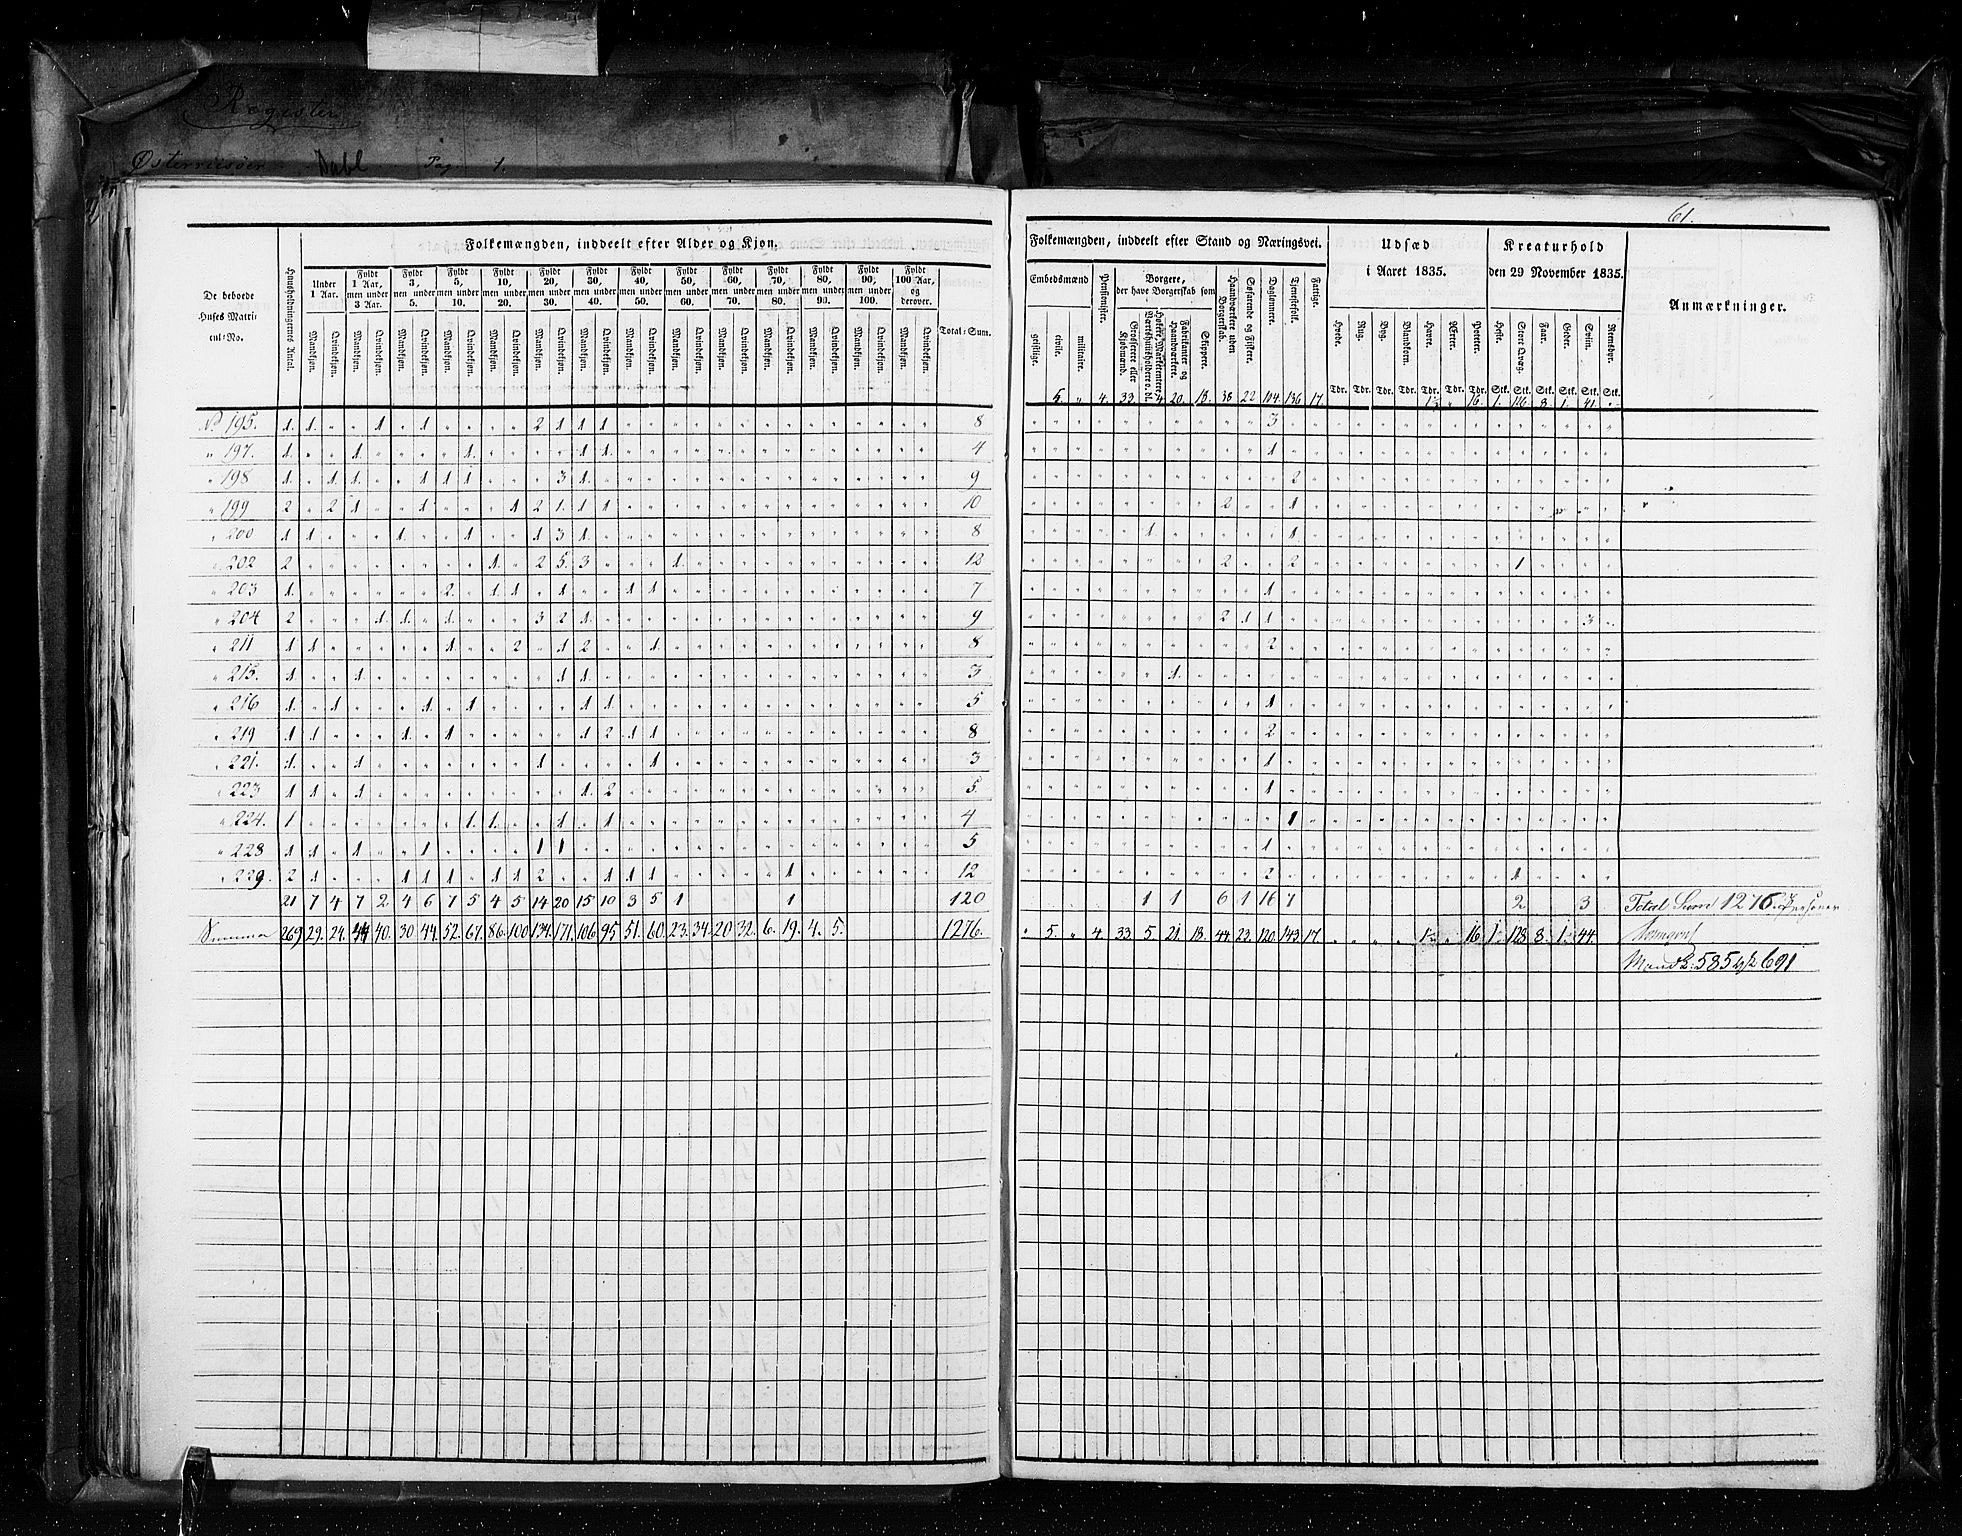 Register
Østerriisøer Dahl Pag 1.
61.
Folkemængden, inddeelt efter Alder og Kjøn.
De beboede Huses Matricul-No.
Huusholdningernes Antal.
Under 1 Aar. | Fyldt 1 Aar, men under 3 Aar. | Fyldt 3, men under 5. | Fyldt 5, men under 10. | Fyldt 10, men under 20. | Fyldt 20, men under 30. | Fyldt 30, men under 40. | Fyldt 40, men under 50. | Fyldt 50, men under 60. | Fyldt 60, men under 70. | Fyldt 70, men under 80. | Fyldt 80, men under 90. | Fyldt 90, men under 100. | Fyldt 100 Aar, og derover.
Mandkjøn. Qvindekjøn. Total-Sum.
No 195. 1. 1. " " 1 " 1 " " " " 2 1 1 1 8
" 197. 1. " " 1 " " " " 1. " " " " 1 1. 4
" 198 1. " 1 1. " " 1 1 1 " " " 3 1. 9
" 199 2 " 2 1 " " 1 " " " 1 2 1. 1 1 10
" 200 1 1 " " " 1 " " 1 " " 1 3 1. 8
" 202 2 " " " " " " " " 1. " 2 5. 3 " " " 1. 12
" 203 1. " " " " " " 2. " 1 1 " 1 " " 1 1. 7
" 204 2 " " " 1. 1. " 1. " " " 3 2 1. 9
" 211 1 1 " " " " " 1 " " 2 " 1 2 " " 1. 8
" 215. 1 " " 1 " " " " " " " " 1 1. 3
" 216 1 " 1 " " " 1 " 1 " " " " 1 1 5
" 219 1 1 " " " 1. " 1 " " " " " 1 2 1 1 8
" 221. 1. " " 1 " " " " " " " 1 " " " " 1 3
" 223 1 1 " 1 " " " " " " " " " 1. 2 5.
" 224. 1 " " " " " " " 1. 1. " " 1 " 1 4
" 228 1 1 " 1 " " 1 " " " " 1 1 5
" 229. 2 1 " " " 1 1 1 " 1 1 2 " " 1 1 1 " " " " " 1 12
21 7 4 7 2 4 6 7 5 4 5 14 20 15 10 3 5 1 1 120
Summa 269 29. 24. 44 40. 30 44. 52. 67. 86. 100 134. 171. 106. 95 51. 60. 23. 34. 20 32. 6. 19. 4. 5. 1276.
Folkemængden, inddeelt efter Stand og Næringsvei.
Udsæd i Aaret 1835.
Kreaturhold den 29 November 1835.
Anmærkninger.
Embedsmænd geistlige. civile. militaire.
Pensionister.
Borgere, der have Borgerskab som
Grosserere eller Kjøbmænd.
Fabrikanter og Haandværkere.
Skippere.
Haandværkere uden Borgerskab.
Søfarende og Fiskere.
Daglønnere.
Tjenestefolk.
Fattige.
Hvede. Rug. Byg. Blandkorn. Havre. Ærter. Poteter.
Heste. Stort Qvæg. Faar. Geder. Sviin. Rensdyr.
Tdr. Tdr. Tdr. Tdr. Tdr. Tdr. Tdr. Stk. Stk. Stk. Stk. Stk. Stk.
5. " 4. 33. 4 20. 18. 38 22 104. 136 17. 16. 1. 126. 8. 1. 41.
3
1
2
2 1
1 1
2 2 1
1
2 1 1 3
2
1.
1
2
1
1
1
1
2 1
1 1 6 1 16 7 2 3 Total Sum 1276 Personer
" 5. " 4. 33. 5. 21. 18. 44. 23. 120. 143. 17. 16 1. 128 8. 1. 44. Hvoraf
Mandk. 585 Qk 691